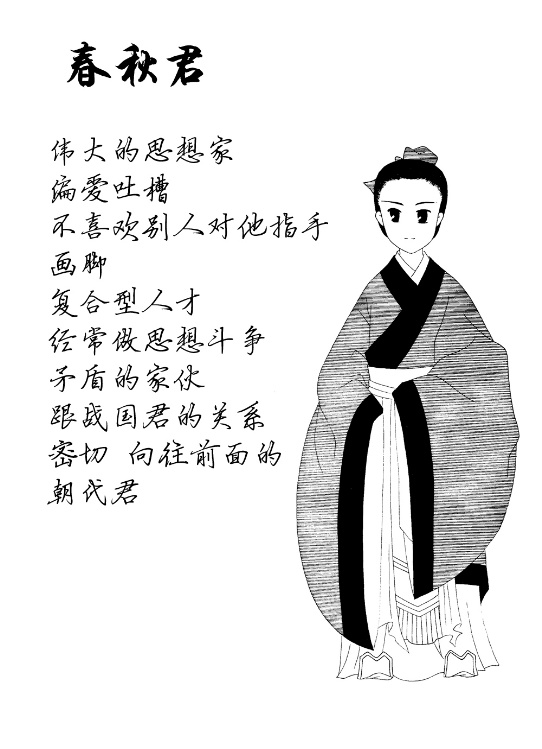 春秋君
伟大的思想家
偏爱吐槽
不喜欢别人对他指手
画脚
复合型人才
经常做思想斗争
矛盾的家伙
跟战国君的关系
密切 向往前面的
朝代君